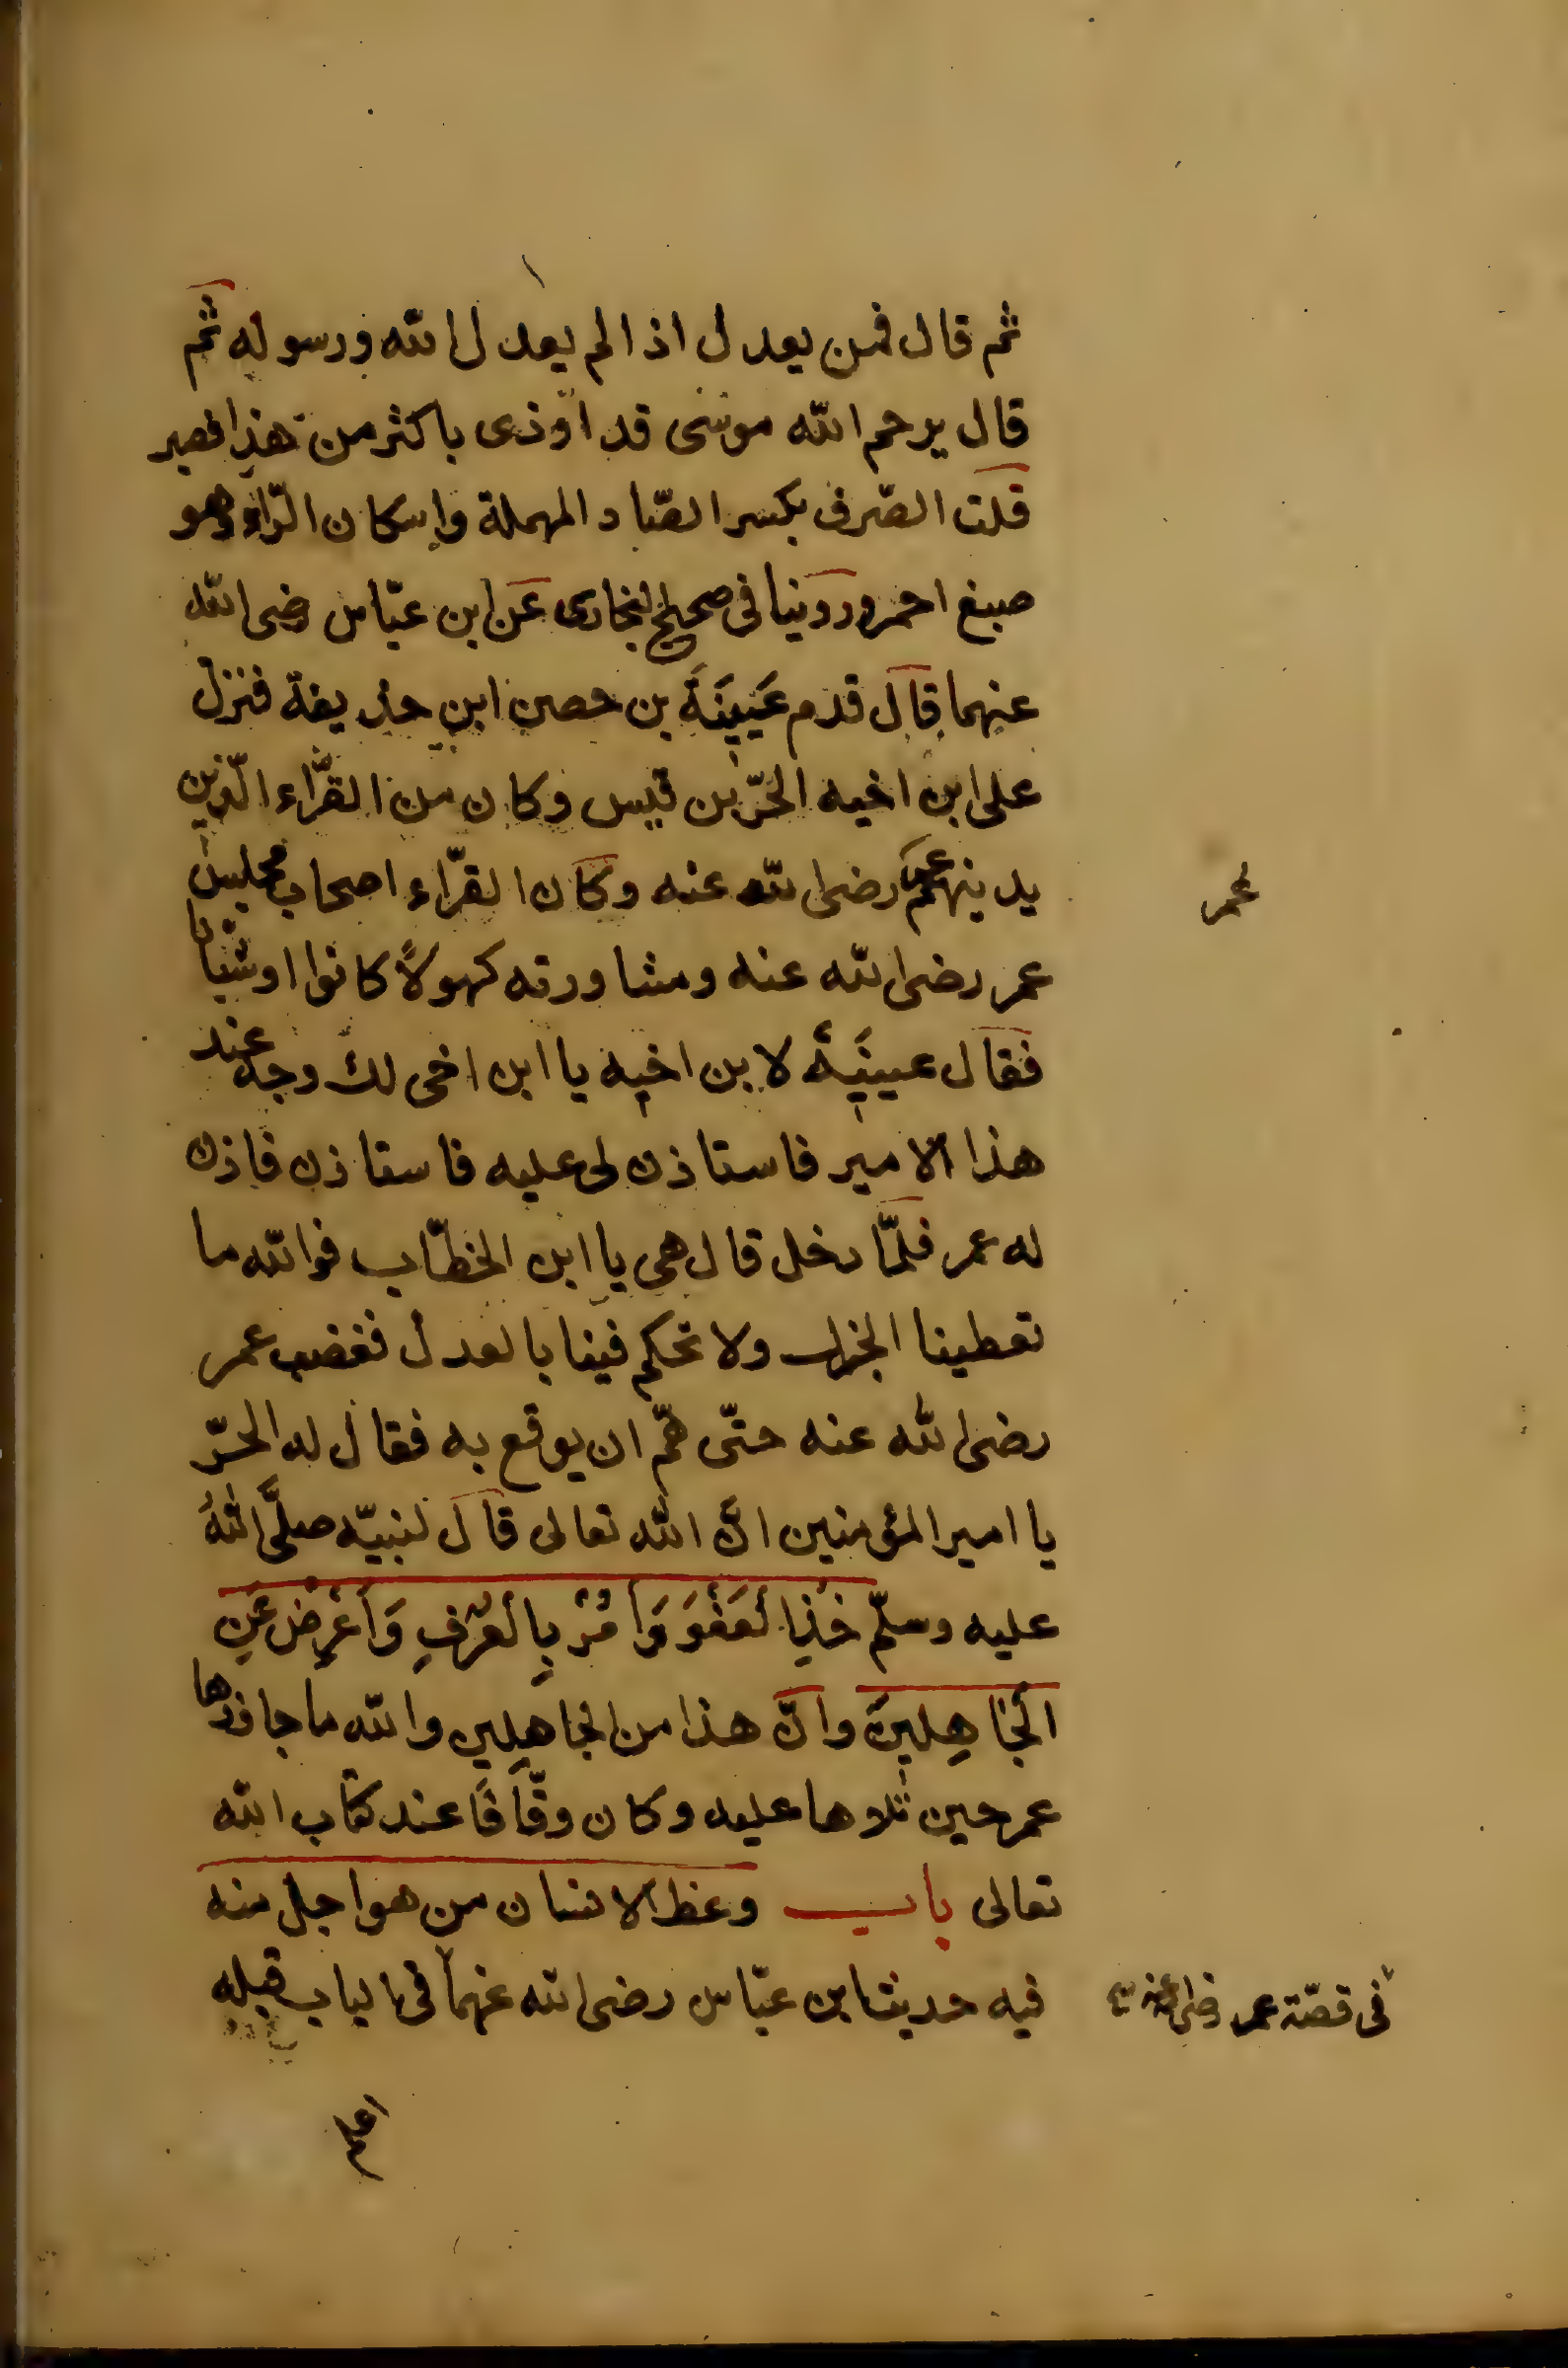 ثم قال فمن يعدل اذا لم يعدل الله ورسوله ثم
قال يرحم الله موسى قد اوذى باكثر من هذا فصبر
قلت الصّرف بكسر الصّاد المهملة واسكان الرّاء وهو
صبغ احمر وروينا فى صحيح البخارى عن ابن عبّاس رضى الله
عنهما قال قدم عُيَينَة بن حصن ابن حذيفة فنزل
على ابن اخيه الحرّ بن قيس وكان من القرّاء الّذين
يدينهم عمر رضى الله عنه وكان القرّاء اصحاب مجلس
عمر
عمر رضى الله عنه ومشاورته كهولاً كانوا او شبّانا
فقال عيينَة لابن اخيه يا ابن اخى لك وجه عند
هذا الامير فاستاذن لى عليه فاستاذن فاذن
له عمر فلمّا دخل قال هى يا ابن الخطّاب فوالله ما
تعطينا الجزل ولا تحكم فينا بالعدل فغضب عمر
رضى الله عنه حتّى همّ ان يوقع به فقال له الحرّ
يا امير المؤمنين انّ الله تعالى قال لنبيّه صلَّى اللهُ
عليه وسلّم خُذِ الْعَفْوَ وَأْمُرْ بِالْعُرْفِ وَأَعْرِضْ عَنِ
الْجَاهِلِينَ وانّ هذا من الجاهلين والله ما جاوزها
عمر حين تلاها عليه وكان وقّافًا عند كتاب الله
تعالى باب وعظ الانسان من هو اجل منه
فيه حديث ابن عبّاس رضى الله عنهما فى الباب قبله
فى قصّة عمر رضى الله عنه
اعلم